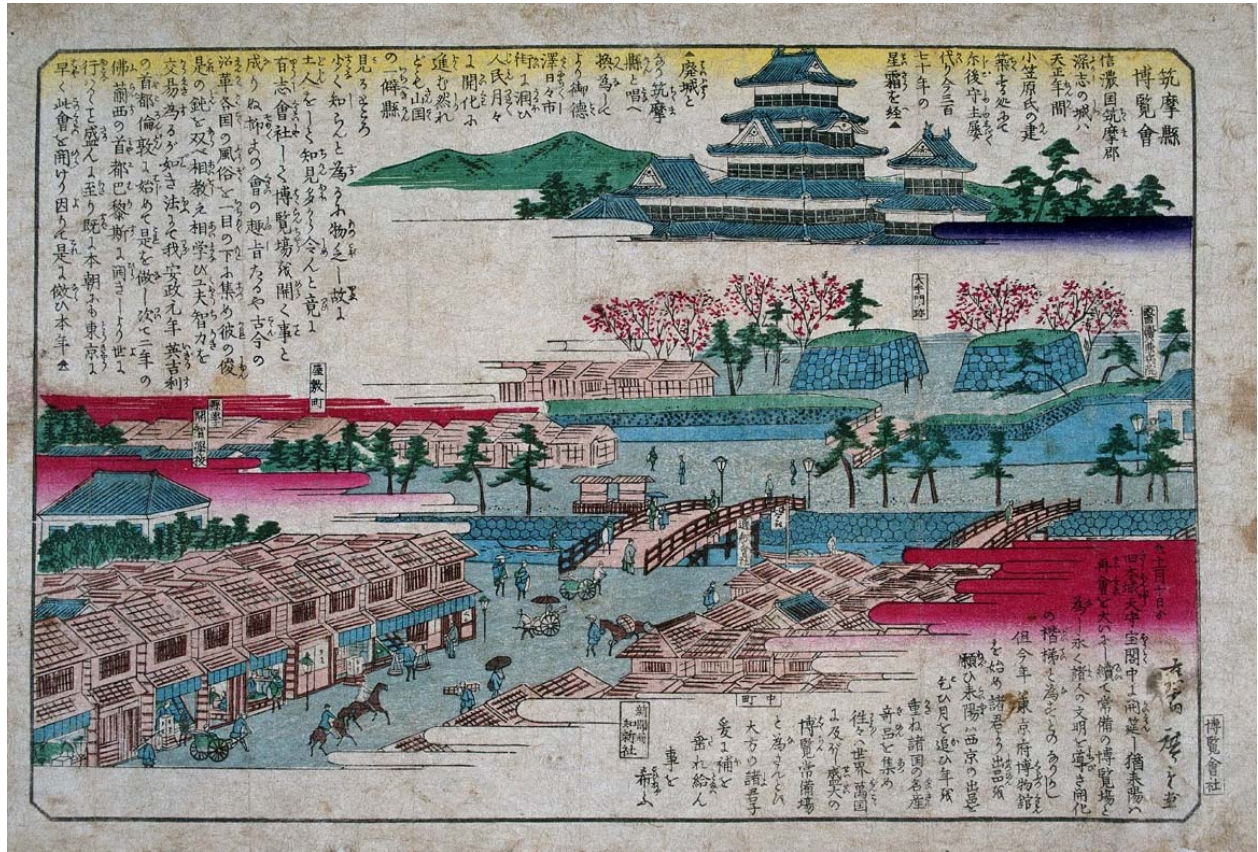 筑摩縣
博覽會
信濃国筑摩郡
深志の城ハ
天正年間
小笠原氏の建
築する処にて
尓後守主屡
代り今三百
七十年の
星霜を経▲
▲廃城と
なり筑摩
縣と唱へ
換為して
より御徳
澤日々市
街に潤ひ
人民月々
に開化に
進む然れ
ども山国
の一僻縣
見るところ
少く知らんと為るに物乏し故に
土人をして知見多からしめんと竟に
有志會社して博覧場を開く事と
成りぬ抑この會の趣旨たるや古今の
沿革各国の風俗を一目の下に集め彼の俊
是の鋭を双べ相教え相学び工夫智力を
交易為るが如き法にて我安政元年英吉利
の首都倫敦に始めて是を做し次て二年の
佛蘭西の首都巴黎斯に開きしより世に
行ハれて盛んに至り既に本朝にも東京に
早く此會を開けり因りて是に倣ひ本年▲
大手門跡
屋敷町
縣學
開智學校
中町
新聞局
知新社
十一月十日より
旧本城天守宝閣中に開莚し猶来陽ハ
再會を大いに続て常備の博覧場と
為し永く諸人の文明を導き開化
の楷梯と為さんとのあらまし
但今年ハ東京府博物館
を始め諸君より出品を
願ひ来陽ハ西京の出品を
乞ひ月を追ひ年を
重ね諸国の名産
奇品を集め
往々世界萬国
に及ぼし盛大の
博覧常備場
と為さんとひ
大方の諸君子
爰に補を
垂れ給ん
事を
希ふ
博覽會社